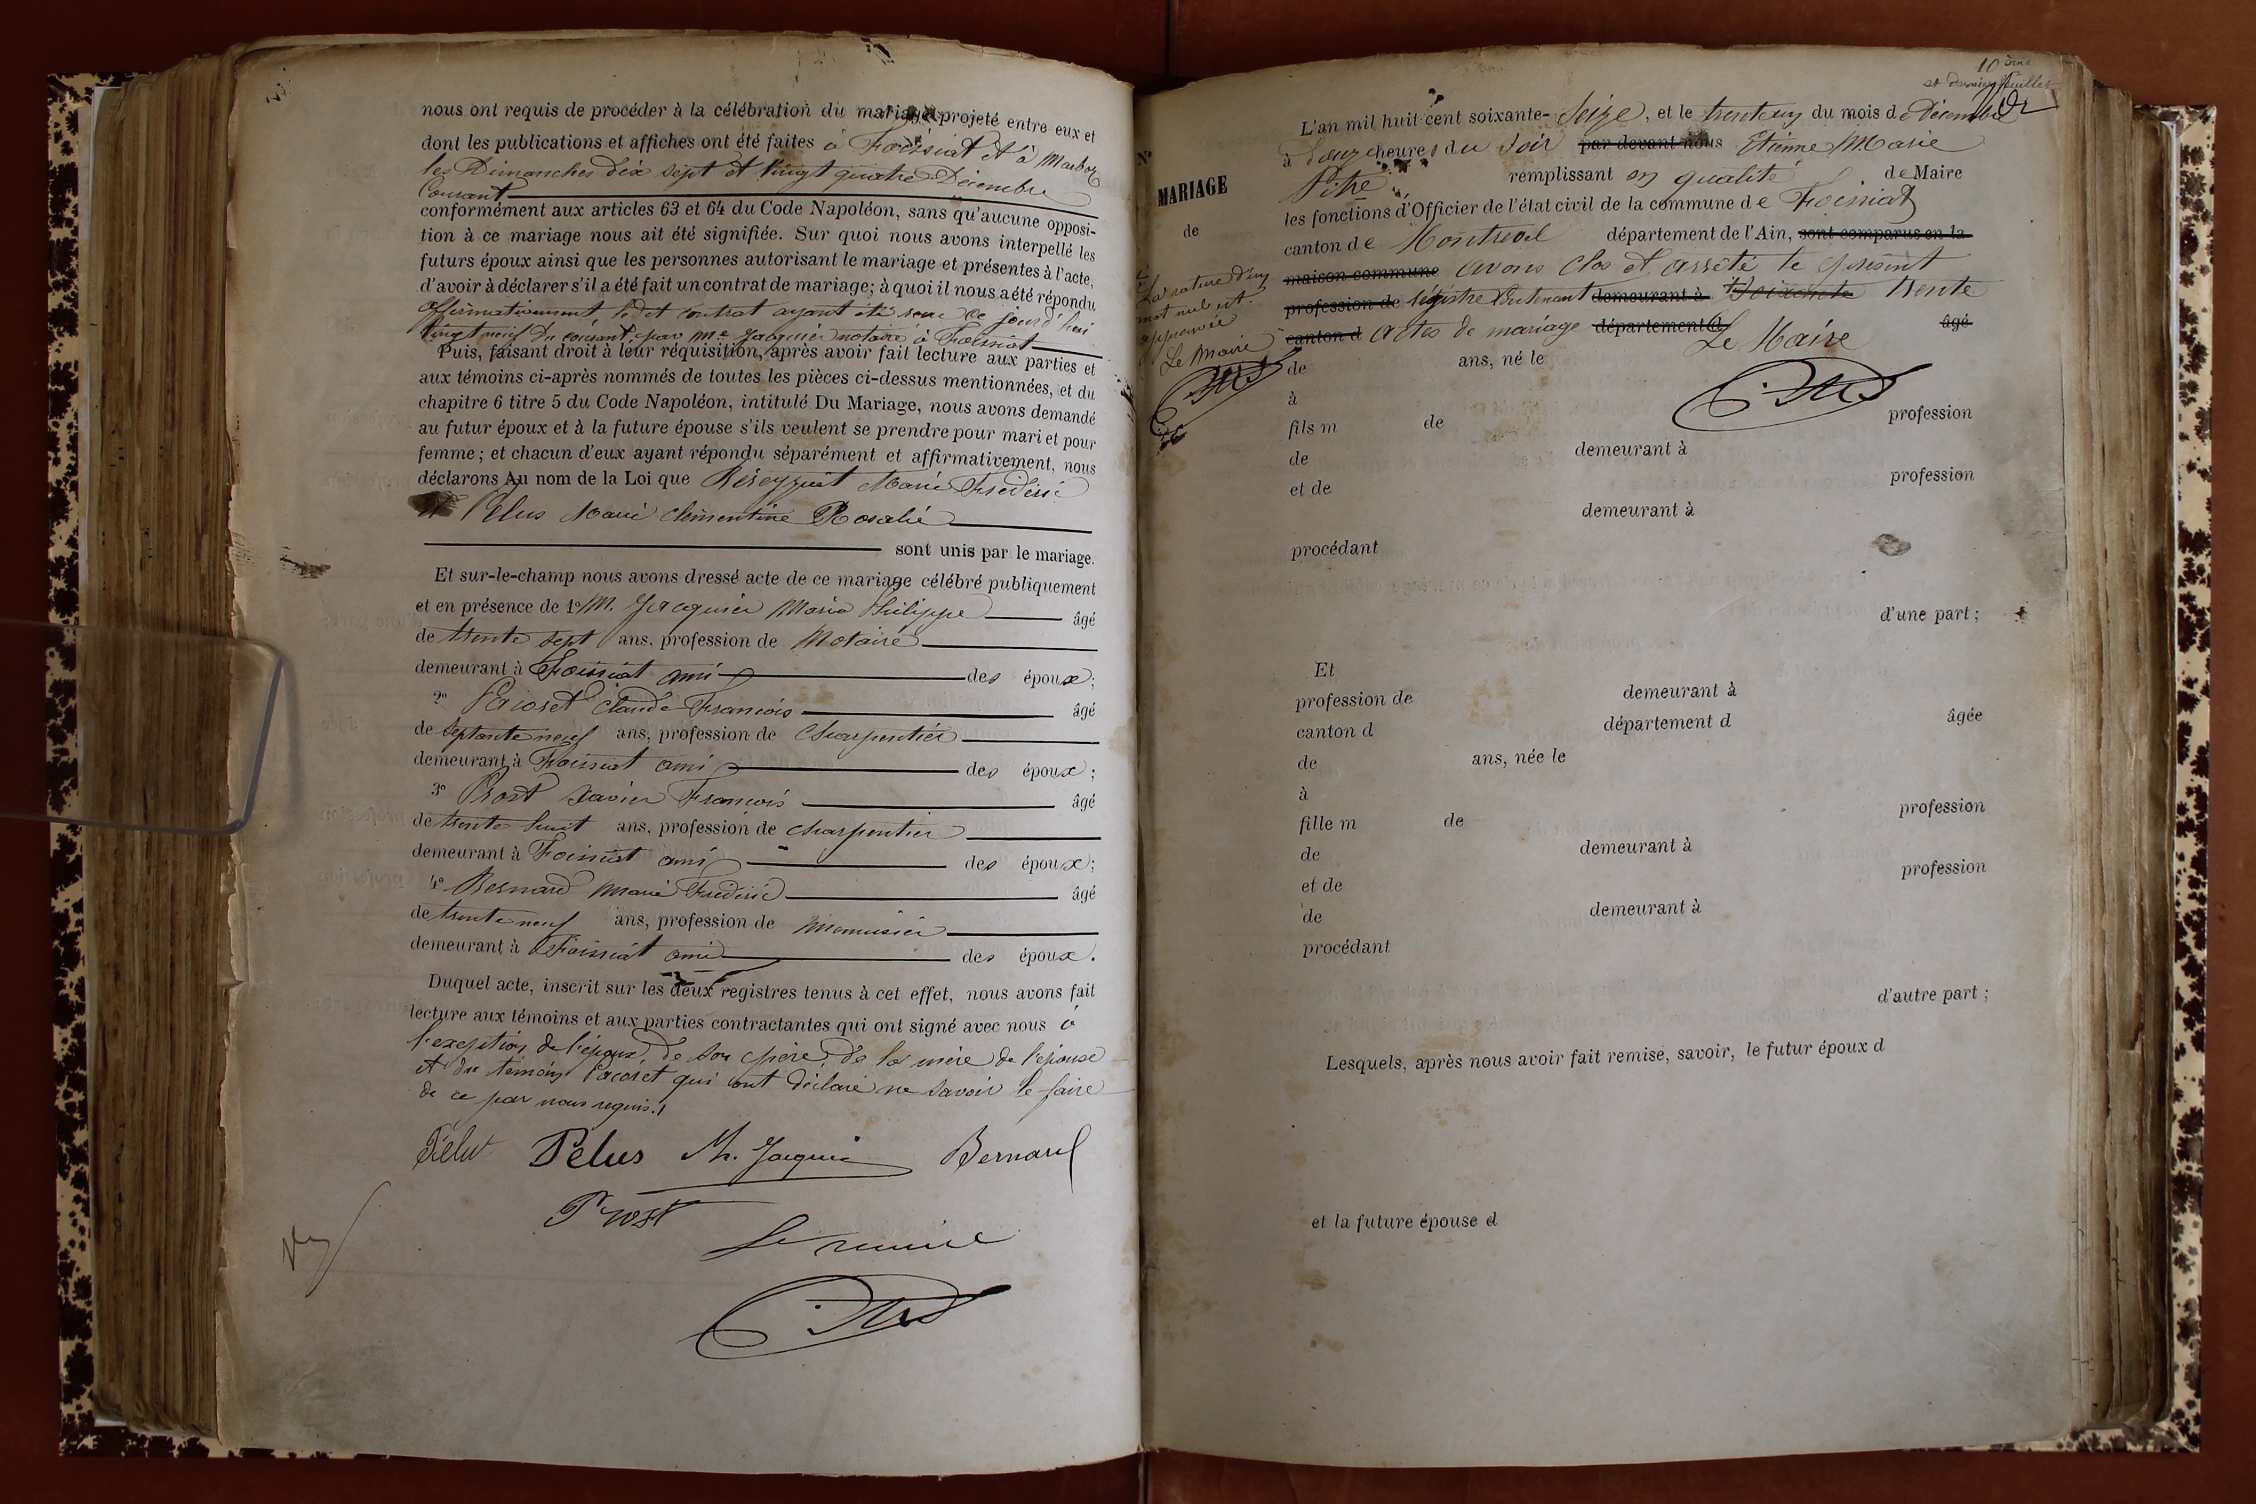 nous ont requis de procéder à la célébration du mariage projeté entre eux et
dont les publications et affiches ont été faites à Foissiat et à Marboz
les Dimanches dix sept et vingt quatre Décembre
Courant
conformément aux articles 63 et 64 du Code Napoléon, sans qu'aucune opposi-
tion à ce mariage nous ait été signifiée. Sur quoi nous avons interpellé les
futurs époux ainsi que les personnes autorisant le mariage et présentes à l'acte,
d'avoir à déclarer s'il a été fait un contrat de mariage; à quoi il nous a été répondu
affirmativement le dit contrat ayant été ce jourd'hui
vingt neuf du courant par Me Jacquier notaire à Foissiat
Puis, faisant droit à leur réquisition, après avoir fait lecture aux parties et
aux témoins ci-après nommés de toutes les pièces ci-dessus mentionnées, et du
chapitre 6 titre 5 du Code Napoléon, intitulé Du Mariage, nous avons demandé
au futur époux et à la future épouse s'ils veulent se prendre pour mari et pour
femme; et chacun d'eux ayant répondu séparément et affirmativement, nous
déclarons Au nom de la Loi que Marie Frédéric
et Pelus Marie Clémentine Rosalie
sont unis par le mariage.
Et sur-le-champ nous avons dressé acte de ce mariage célébré publiquement
et en présence de 1o M. Jacquier Marie Philippe âgé
de trente sept ans, profession de Notaire
demeurant à Foissiat ami des époux;
2o Pacoret Claude François âgé
de septante neuf ans, profession de Charpentier
demeurant à Foissiat ami des époux;
3o Prost Xavier François âgé
de trente huit ans, profession de charpentier
demeurant à Foissiat ami des époux;
4o Bernard Marie Frédéric âgé
de trente neuf ans, profession de menuisier
demeurant à Foissiat ami des époux.
Duquel acte, inscrit sur les deux registres tenus à cet effet, nous avons fait
lecture aux témoins et aux parties contractantes qui ont signé avec nous à
l'exception de l'époux, de son père, de la mère de l'épouse
et du témoin Pacoret qui ont déclaré ne savoir le faire
de ce par nous requis.
Pélus Pelus Ph. Jacquier Bernard
Prost
Le maire
10ème
et dernier feuillet
No
MARIAGE
de
La rature d'un
mot nul est
approuvée
Le Maire
L'an mil huit cent soixante-seize, et le trente un du mois de Décembre
à douze heures du soir par devant nous Etienne Marie
Pitre remplissant en qualité de Maire
les fonctions d'Officier de l'état civil de la commune de Foissiat
canton de Montrevel département de l'Ain, sont comparus en la
maison commune avons clos et arrêté le présent
profession de régistre contenant demeurant à Soixante trente
canton d actes de mariage département d âgé
Le Maire
de ans, né le
à
fils m de profession
de demeurant à
et de profession
demeurant à
procédant
d'une part;
Et
profession de demeurant à
canton d département d âgée
de ans, née le
à
fille m de profession
de demeurant à
et de profession
de demeurant à
procédant
d'autre part;
Lesquels, après nous avoir fait remise, savoir, le futur époux d
et la future épouse d